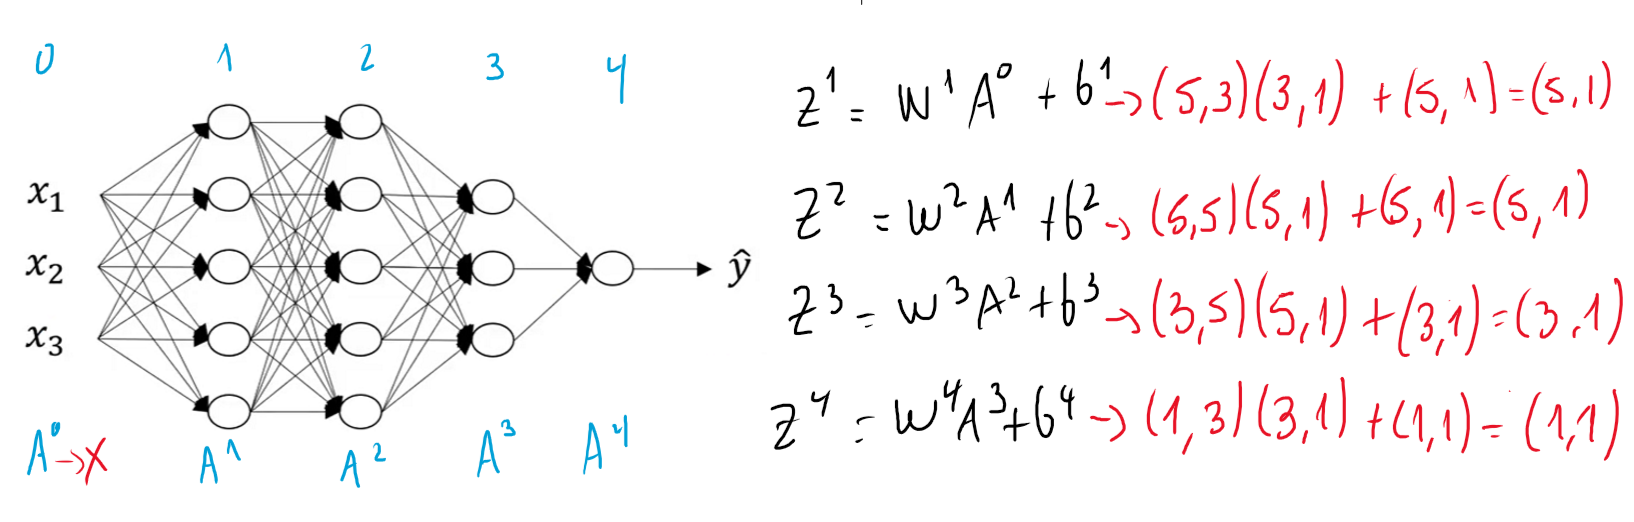 0 1 2 3 4
x₁
x₂
x₃
ŷ
A⁰→X A¹ A² A³ A⁴
Z¹ = W¹A⁰ + b¹→(5,3)(3,1) + (5,1)=(5,1)
Z² = W²A¹ + b²→(5,5)(5,1) + (5,1)=(5,1)
Z³ = W³A² + b³→(3,5)(5,1) + (3,1)=(3,1)
Z⁴ = W⁴A³ + b⁴→(1,3)(3,1) + (1,1)=(1,1)